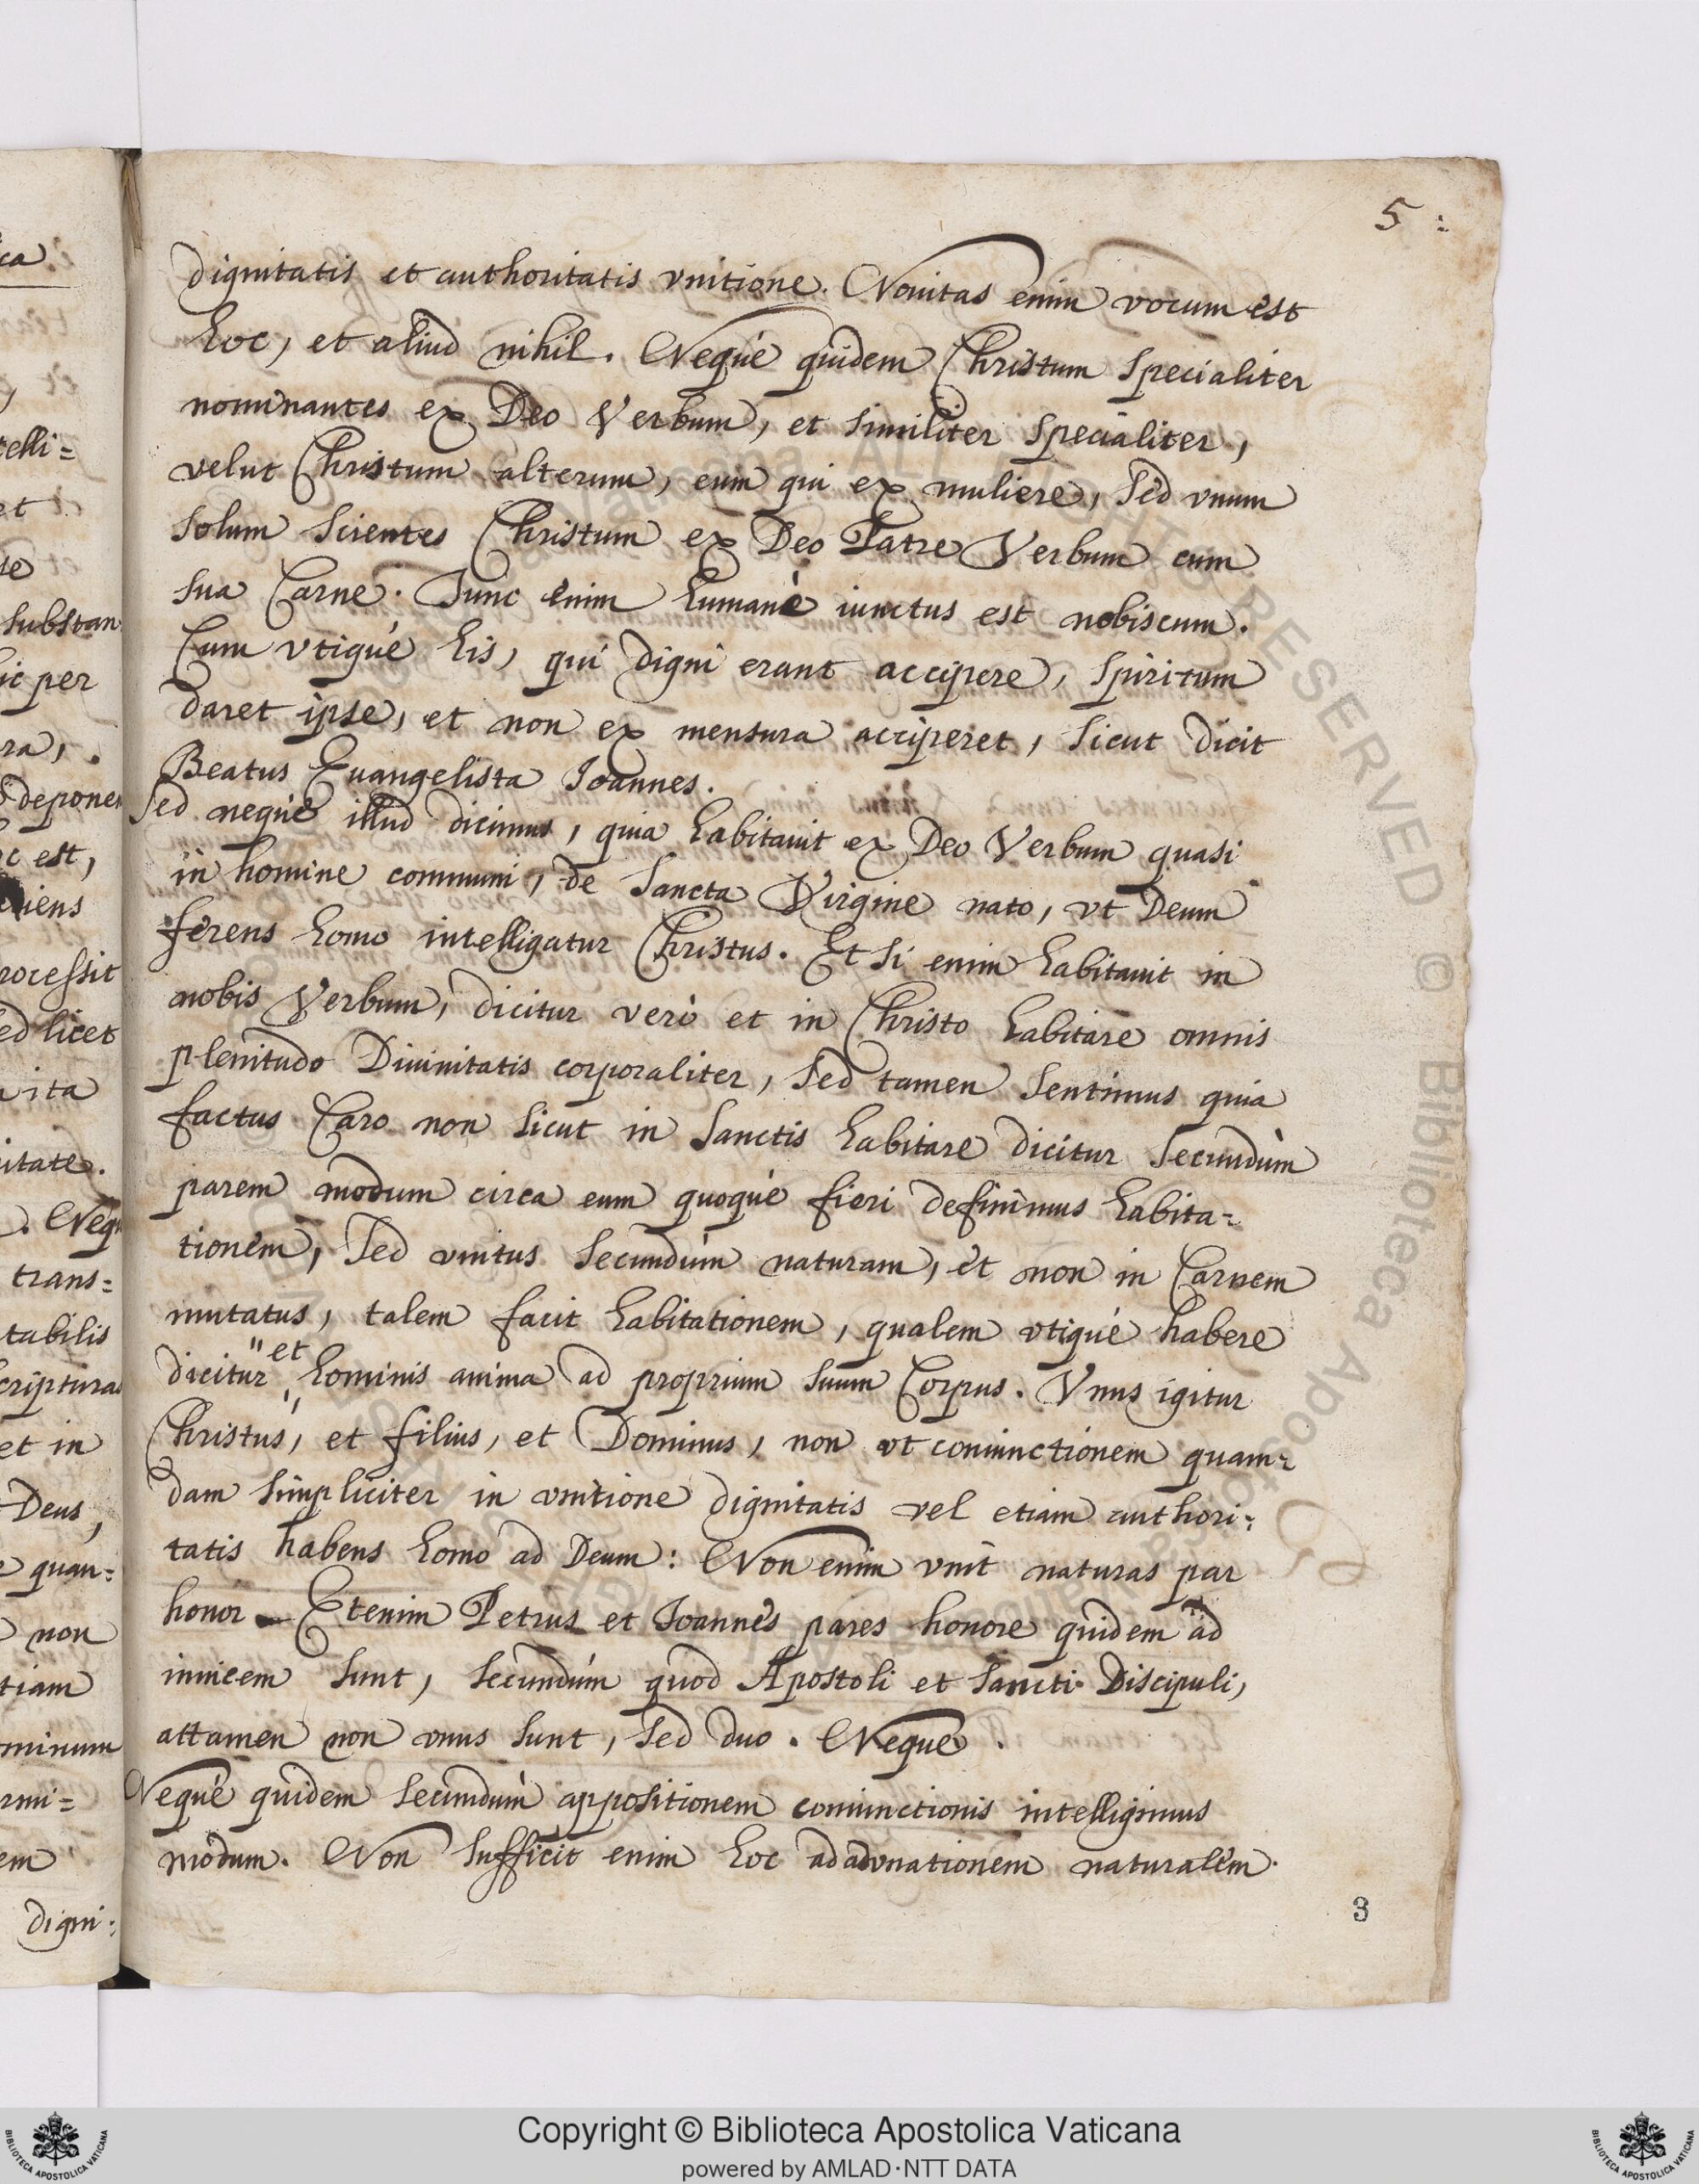 5 :
dignitatis et authoritatis vnitione. Nouitas enim vocum est
hoc, et aliud nihil. Nequè quidem Christum specialiter
nominantes ex Deo Verbum, et similiter specialiter,
velut Christum alterum, eum qui ex muliere, sed vnum
solum scientes Christum ex Deo Patre Verbum cum
sua Carne. Tunc enim humanè iunctus est nobiscum.
Cum vtiquè his, qui digni erant accipere, spiritum
daret ipse, et non ex mensura acciperet, sicut dicit
Beatus Euangelista Ioannes.
Sed nequè illud dicimus, quia habitauit ex Deo Verbum quasi
in homine communi, de Sancta Virgine nato, vt Deum
ferens homo intelligatur Christus. Et si enim habitauit in
nobis Verbum, dicitur verò et in Christo habitare omnis
plenitudo Diuinitatis corporaliter, sed tamen sentimus quia
factus Caro non sicut in Sanctis habitare dicitur secundùm
parem modum circa eum quoquè fieri definimus habita=
tionem, sed vnitus secundùm naturam, et non in Carnem
mutatus, talem facit habitationem, qualem vtiquè habere
dicitur et hominis anima ad proprium suum Corpus. Vnus igitur
Christus, et filius, et Dominus, non vt coniunctionem quam=
dam simpliciter in vnitione dignitatis vel etiam authori=
tatis habens homo ad Deum: Non enim vnit naturas par
honor. Etenim Petrus et Ioannes pares honore quidem ad
inuicem sunt, secundùm quod Apostoli et Sancti Discipuli,
attamen non vnus sunt, sed duo. Nequè.
Nequè quidem secundùm appositionem coniunctionis intelligimus
modum. Non sufficit enim hoc ad adunationem naturalem.
3
ca
telli=
et
substan
ic per
ra,
deponen
c est,
iens
rocessit
ed licet
ita
itate.
. Nequ
trans=
tabilis
criptura
et in
Deus,
quan=
non
tiam
minum
rmi=
em
digni=
Copyright © Biblioteca Apostolica Vaticana
powered by AMLAD·NTT DATA
BIBLIOTECA APOSTOLICA VATICANA
BIBLIOTECA APOSTOLICA VATICANA